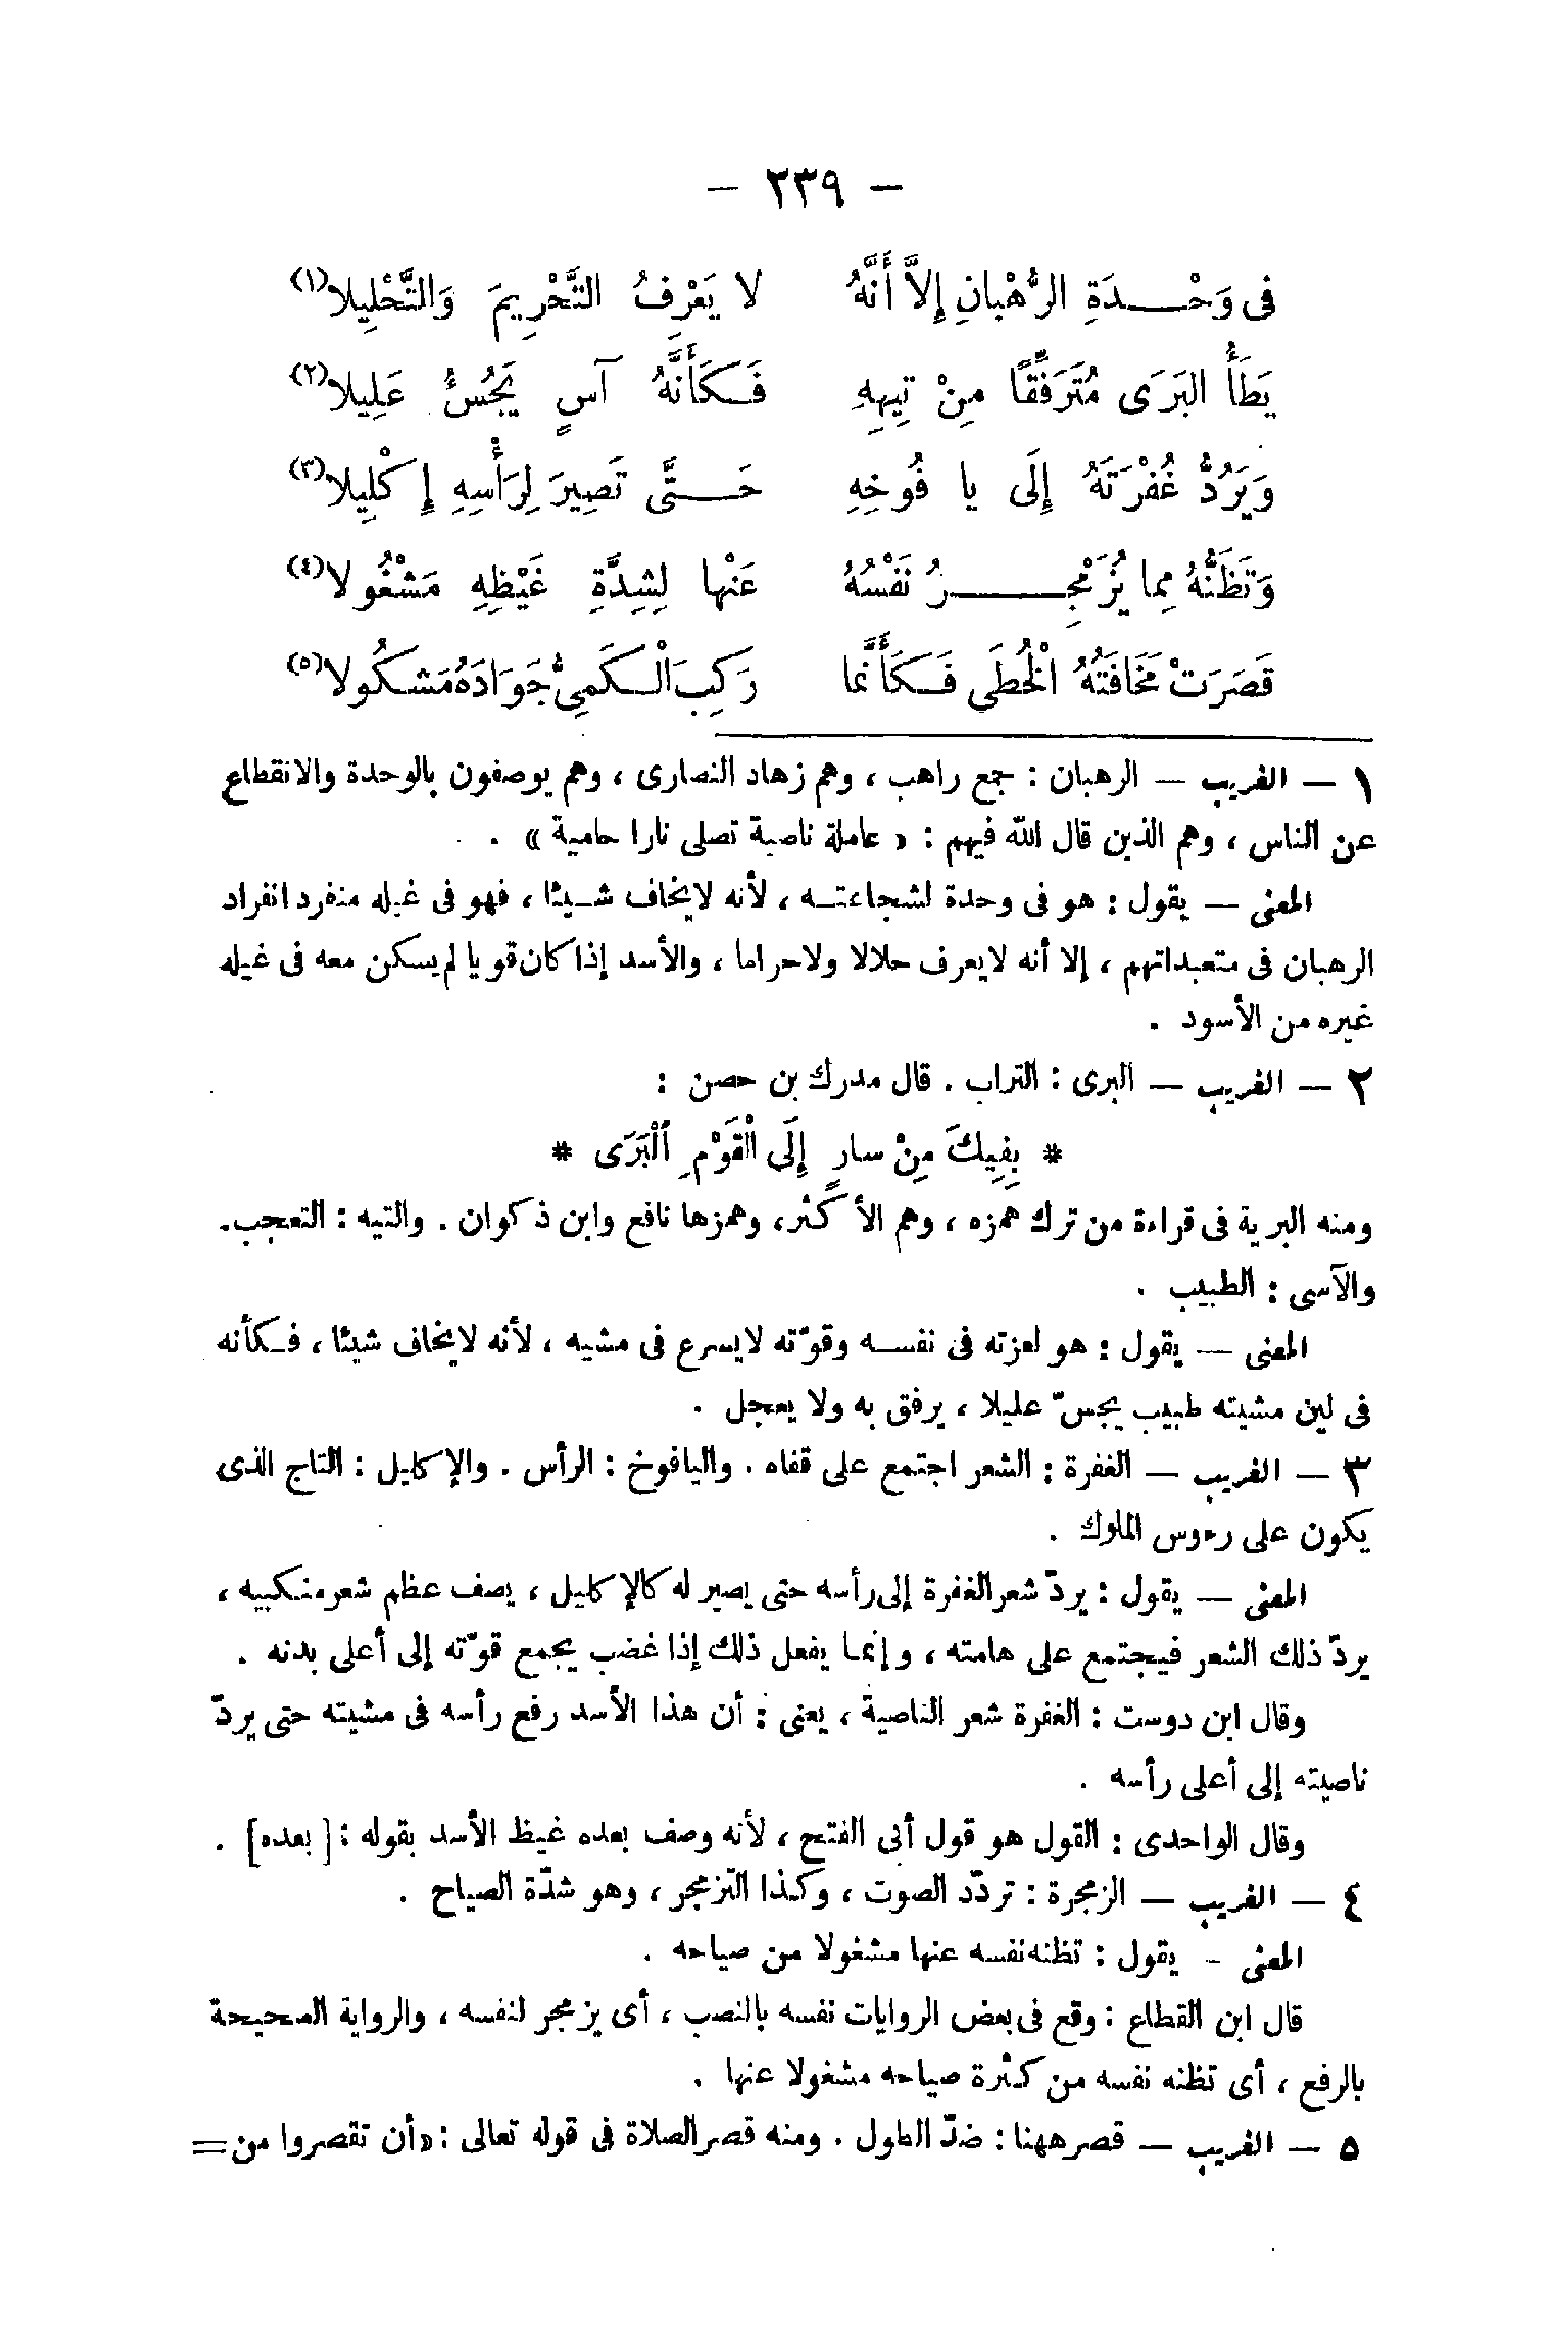 — ٢٣٩ —
فى وَحْـــدَةِ الرُّهْبانِ إِلاَّ أَنَّهُ لا يَعْرِفُ التَّحْرِيمَ وَالتَّحْلِيلا(١)
يَطَأُ البَرَى مُتَرَفِّقًا مِنْ تِيهِهِ فَـكَأَنَّهُ آسٍ يَجُسُّ عَلِيلا(٢)
وَيَرُدُّ غُفْرَتَهُ إِلَى يا فُوخِهِ حَـــتَّى تَصِيرَ لِرَأْسِهِ إِكْلِيلا(٣)
وَتَظَنُّهُ مِما يُزَمْجِـــــرُ نَفْسُهُ عَنْها لِشِدَّةِ غَيْظِهِ مَشْغُولا(٤)
قَصَرَتْ مَخَافَتُهُ الْخُطَى فَـكَأَنَّما رَكِبَ الْـكَمِىُّ جَوَادَهُ مَشْكُولا(٥)
١ — الغريب — الرهبان : جمع راهب ، وهم زهاد النصارى ، وهم يوصفون بالوحدة والانقطاع
عن الناس ، وهم الذين قال الله فيهم : « عاملة ناصبة تصلى نارا حامية » .
المعنى — يقول : هو فى وحدة لشجاعتـه ، لأنه لايخاف شـيئا ، فهو فى غيله منفرد انفراد
الرهبان فى متعبداتهم ، إلا أنه لايعرف حلالا ولاحراما ، والأسد إذا كان قويا لم يسكن معه فى غيله
غيره من الأسود .
٢ — الغريب — البرى : التراب . قال مدرك بن حصن :
* بِفِيكَ مِنْ سارٍ إِلَى الْقَوْمِ الْبَرَى *
ومنه البرية فى قراءة من ترك همزه ، وهم الأكثر، وهمزها نافع وابن ذكوان . والتيه : التعجب.
والآسى : الطبيب .
المعنى — يقول : هو لعزته فى نفسـه وقوّته لايسرع فى مشيه ، لأنه لايخاف شيئا ، فـكأنه
فى لين مشيته طبيب يجسّ عليلا ، يرفق به ولا يعجل .
٣ — الغريب — الغفرة : الشعر اجتمع على قفاه . واليافوخ : الرأس . والإكليل : التاج الذى
يكون على رءوس الملوك .
المعنى — يقول : يردّ شعر الغفرة إلى رأسه حتى يصير له كالإكليل ، يصف عظم شعر منكبيه ،
يردّ ذلك الشعر فيجتمع على هامته ، وإنما يفعل ذلك إذا غضب يجمع قوّته إلى أعلى بدنه .
وقال ابن دوست : الغفرة شعر الناصية ، يعنى : أن هذا الأسد رفع رأسه فى مشيته حتى يردّ
ناصيته إلى أعلى رأسه .
وقال الواحدى : القول هو قول أبى الفتح ، لأنه وصف بعده غيظ الأسد بقوله : [ بعده ] .
٤ — الغريب — الزمجرة : تردّد الصوت ، وكذا التزمجر ، وهو شدّة الصياح .
المعنى - يقول : تظنه نفسه عنها مشغولا من صياحه .
قال ابن القطاع : وقع فى بعض الروايات نفسه بالنصب ، أى يزمجر لنفسه ، والرواية الصحيحة
بالرفع ، أى تظنه نفسه من كثرة صياحه مشغولا عنها .
٥ — الغريب — قصر ههنا : ضدّ الطول . ومنه قصر الصلاة فى قوله تعالى : «أن تقصروا من =